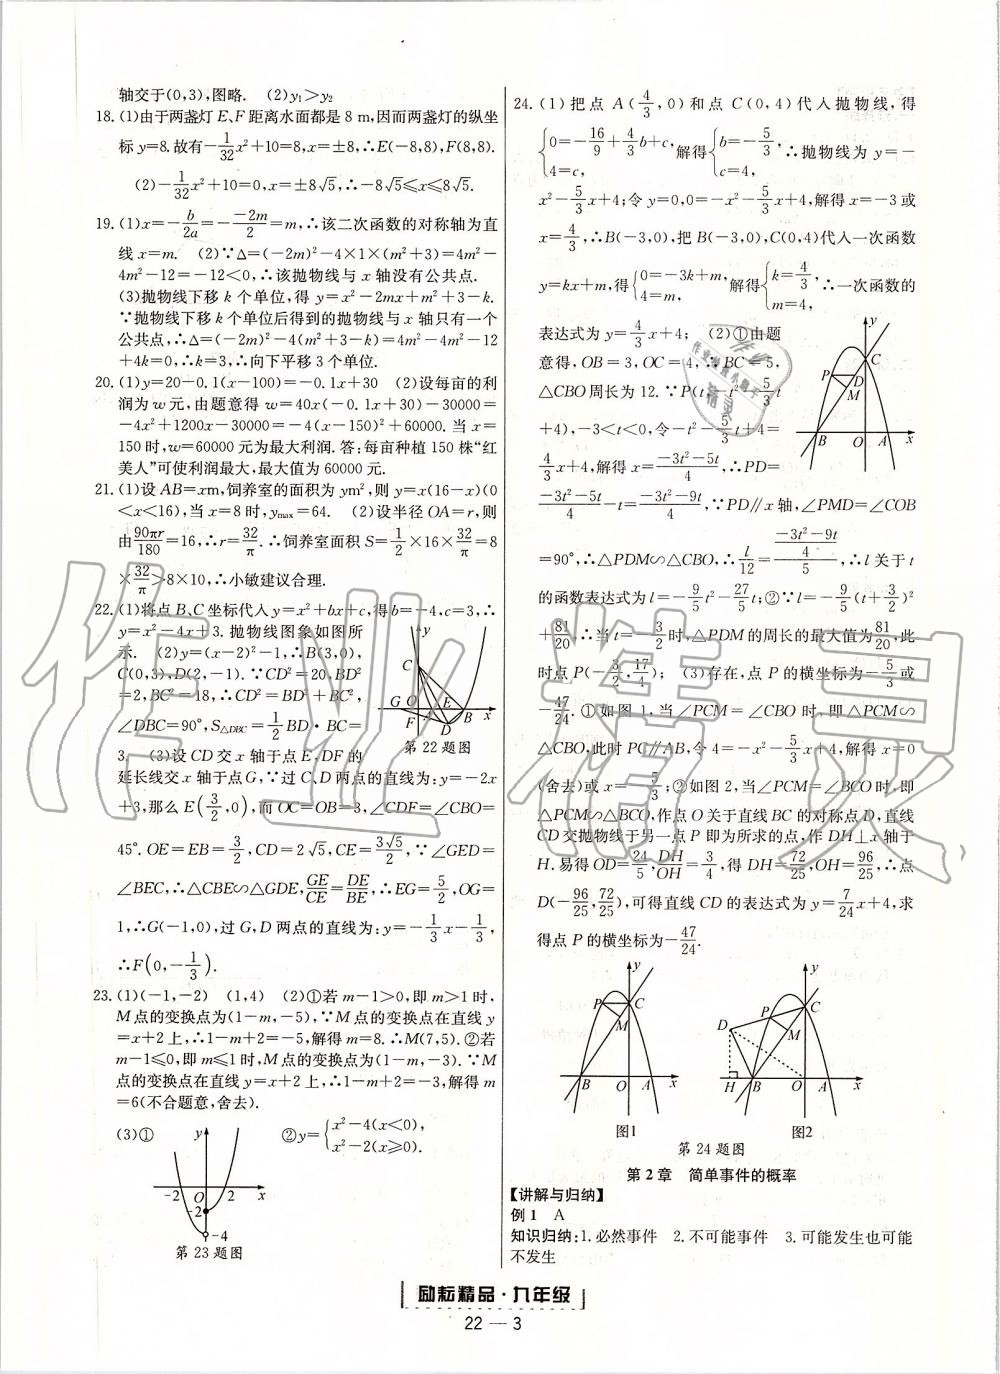 轴交于(0,3),图略.  (2)y₁>y₂
18.(1)由于两盏灯E、F距离水面都是8 m,因而两盏灯的纵坐
标y=8.故有-1/32x²+10=8,x=±8,∴E(-8,8),F(8,8).
(2)-1/32x²+10=0,x=±8√5,∴-8√5≤x≤8√5.
19.(1)x=-b/2a=-(-2m)/2=m,∴该二次函数的对称轴为直
线x=m.  (2)∵Δ=(-2m)²-4×1×(m²+3)=4m²-
4m²-12=-12<0,∴该抛物线与x轴没有公共点.
(3)抛物线下移k个单位,得y=x²-2mx+m²+3-k.
∵抛物线下移k个单位后得到的抛物线与x轴只有一个
公共点,∴Δ=(-2m)²-4(m²+3-k)=4m²-4m²-12
+4k=0,∴k=3,∴向下平移3个单位.
20.(1)y=20-0.1(x-100)=-0.1x+30  (2)设每亩的利
润为w元,由题意得w=40x(-0.1x+30)-30000=
-4x²+1200x-30000=-4(x-150)²+60000.当x=
150时,w=60000元为最大利润.答:每亩种植150株“红
美人”可使利润最大,最大值为60000元.
21.(1)设AB=xm,饲养室的面积为ym²,则y=x(16-x)(0
<x<16),当x=8时,yₘₐₓ=64.  (2)设半径OA=r,则
由90πr/180=16,∴r=32/π.∴饲养室面积S=1/2×16×32/π=8
×32/π>8×10,∴小敏建议合理.
22.(1)将点B、C坐标代入y=x²+bx+c,得b=-4,c=3,∴
y=x²-4x+3.抛物线图象如图所
示.  (2)y=(x-2)²-1,∴B(3,0),
C(0,3),D(2,-1).∵CD²=20,BD²
=2,BC²=18,∴CD²=BD²+BC²,
∠DBC=90°,S△DBC=1/2BD·BC=
3.  (3)设CD交x轴于点E,DF的
延长线交x轴于点G,∵过C、D两点的直线为:y=-2x
+3,那么E(3/2,0),而OC=OB=3,∠CDF=∠CBO=
45°.OE=EB=3/2,CD=2√5,CE=3√5/2,∵∠GED=
∠BEC,∴△CBE∽△GDE,GE/CE=DE/BE,∴EG=5/2,OG=
1,∴G(-1,0),过G、D两点的直线为:y=-1/3x-1/3,
∴F(0,-1/3).
y
C
G O E B x
F D
第22题图
23.(1)(-1,-2)  (1,4)  (2)①若m-1>0,即m>1时,
M点的变换点为(1-m,-5),∵M点的变换点在直线y
=x+2上,∴1-m+2=-5,解得m=8.∴M(7,5).②若
m-1≤0,即m≤1时,M点的变换点为(1-m,-3).∵M
点的变换点在直线y=x+2上,∴1-m+2=-3,解得m
=6(不合题意,舍去).
(3)①  ②y={x²-4(x<0),
x²-2(x≥0).
y
-2 O 2 x
-2
-4
第23题图
24.(1)把点A(4/3,0)和点C(0,4)代入抛物线,得
{0=-16/9+4/3b+c,
4=c,
解得{b=-5/3,
c=4,
∴抛物线为y=-
x²-5/3x+4;令y=0,0=-x²-5/3x+4,解得x=-3或
x=4/3,∴B(-3,0),把B(-3,0),C(0,4)代入一次函数
y=kx+m,得{0=-3k+m,
4=m,
解得{k=4/3,
m=4,
∴一次函数的
表达式为y=4/3x+4;  (2)①由题
意得,OB=3,OC=4,∴BC=5,
△CBO周长为12.∵P(t,-t²-5/3t
+4),-3<t<0,令-t²-5/3t+4=
4/3x+4,解得x=(-3t²-5t)/4,∴PD=
(-3t²-5t)/4-t=(-3t²-9t)/4,∵PD∥x轴,∠PMD=∠COB
=90°,∴△PDM∽△CBO,∴l/12=((-3t²-9t)/4)/5,∴l关于t
的函数表达式为l=-9/5t²-27/5t;②∵l=-9/5(t+3/2)²
+81/20,∴当t=-3/2时,△PDM的周长的最大值为81/20,此
时点P(-3/2,17/4);  (3)存在,点P的横坐标为-5/3或
-47/24.①如图1,当∠PCM=∠CBO时,即△PCM∽
△CBO,此时PC∥AB,令4=-x²-5/3x+4,解得x=0
(舍去)或x=-5/3;②如图2,当∠PCM=∠BCO时,即
△PCM∽△BCO,作点O关于直线BC的对称点D,直线
CD交抛物线于另一点P即为所求的点,作DH⊥x轴于
H.易得OD=24/5,DH/OH=3/4,得DH=72/25,OH=96/25,∴点
D(-96/25,72/25),可得直线CD的表达式为y=7/24x+4,求
得点P的横坐标为-47/24.
y
C
P D
M
B O A x
y
P C
M
B O A x
图1
y
C
D P
M
H B O A x
图2
第24题图
第2章  简单事件的概率
【讲解与归纳】
例1  A
知识归纳:1.必然事件  2.不可能事件  3.可能发生也可能
不发生
励耘精品·九年级
22—3
作业精灵